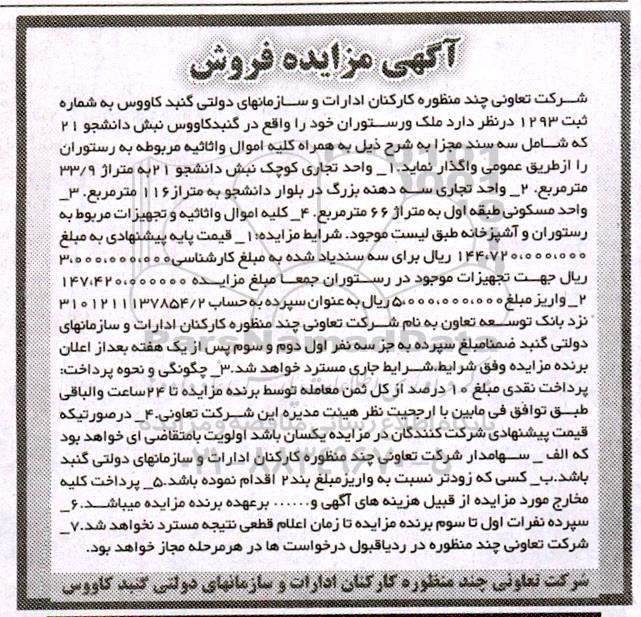 آگهی مزایده فروش
شرکت تعاونی چند منظوره کارکنان ادارات و سازمانهای دولتی گنبد کاووس به شماره
ثبت ۱۲۹۳ درنظر دارد ملک ورستوران خود را واقع در گنبدکاووس نبش دانشجو ۲۱
که شامل سه سند مجزا به شرح ذیل به همراه کلیه اموال واثاثیه مربوطه به رستوران
را ازطریق عمومی واگذار نماید.۱_ واحد تجاری کوچک نبش دانشجو ۲۱به متراژ ۳۳/۹
مترمربع. ۲_ واحد تجاری سه دهنه بزرگ در بلوار دانشجو به متراز۱۱۶ مترمربع. ۳_
واحد مسکونی طبقه اول به متراژ ۶۶ مترمربع. ۴_ کلیه اموال واثاثیه و تجهیزات مربوط به
رستوران و آشپزخانه طبق لیست موجود. شرایط مزایده:۱_ قیمت پایه پیشنهادی به مبلغ
۱۴۴،۷۲۰،۰۰۰،۰۰۰ ریال برای سه سندیاد شده به مبلغ کارشناسی۳،۰۰۰،۰۰۰،۰۰۰
ریال جهت تجهیزات موجود در رستوران جمعا مبلغ مزایده ۱۴۷،۴۲۰،۰۰۰۰۰۰
۲_واریز مبلغ۵،۰۰۰،۰۰۰،۰۰۰ ریال به عنوان سپرده به حساب ۳۱۰۱۲۱۱۱۳۷۸۵۴/۲
نزد بانک توسعه تعاون به نام شرکت تعاونی چند منظوره کارکنان ادارات و سازمانهای
دولتی گنبد ضمنامبلغ سپرده به جز سه نفر اول دوم و سوم پس از یک هفته بعداز اعلان
برنده مزایده وفق شرایط،شرایط جاری مسترد خواهد شد.۳_ چگونگی و نحوه پرداخت:
پرداخت نقدی مبلغ ۱۰ درصد از کل ثمن معامله توسط برنده مزایده تا ۲۴ساعت والباقی
طبق توافق فی مابین با ارجحیت نظر هیئت مدیره این شرکت تعاونی.۴_ درصورتیکه
قیمت پیشنهادی شرکت کنندگان در مزایده یکسان باشد اولویت بامتقاضی ای خواهد بود
که الف_ سهامدار شرکت تعاونی چند منظوره کارکنان ادارات و سازمانهای دولتی گنبد
باشد.ب_ کسی که زودتر نسبت به واریزمبلغ بند۲ اقدام نموده باشد.۵_ پرداخت کلیه
مخارج مورد مزایده از قبیل هزینه های آگهی و...... برعهده برنده مزایده میباشد.۶_
سپرده نفرات اول تا سوم برنده مزایده تا زمان اعلام قطعی نتیجه مسترد نخواهد شد.۷_
شرکت تعاونی چند منظوره در ردیاقبول درخواست ها در هرمرحله مجاز خواهد بود.
شرکت تعاونی چند منظوره کارکنان ادارات و سازمانهای دولتی گنبد کاووس
ParsNamadData
پایگاه اطلاع رسانی مناقصه و مزایده
۰۲۱-۸۸۳۴۹۶۷۰-۵